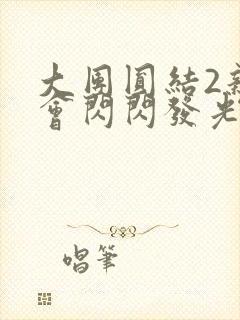 大団圓結2新
會閃閃發光
唱筆